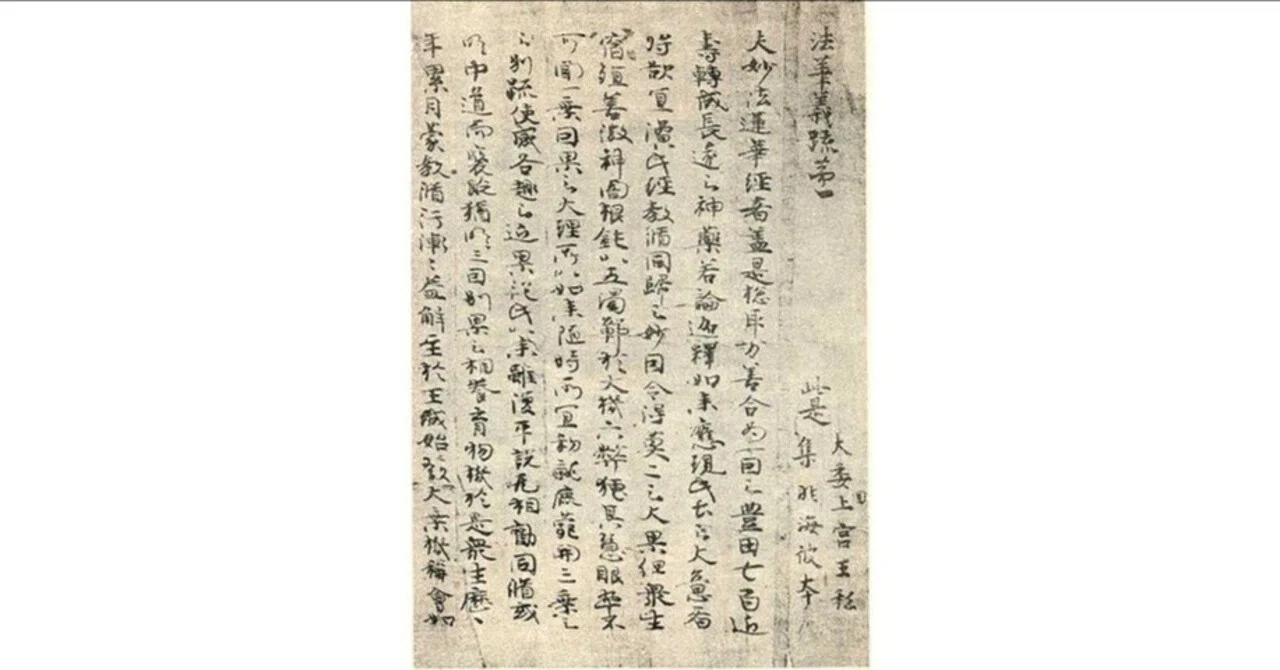 法華義疏第一
此是
大委国上宮王私
集非海彼本
夫妙法蓮華経者盖是惣取万善合為一因之豊田七百近
壽轉成長遠之神藥若論迹釋如来應現此土之大意者
将欲宜演此経教脩同歸之妙因令得莫二之大果但衆生
宿殖善微神闇根鈍以五濁鄣於大機六弊掩其慧眼卒不
可聞一乗因果之大理所以如来随時所宜初就鹿菀開三乗之
之別疏使感各趣之近果従此以来雖復平説无相勸同脩或
明中道而褒貶猶明三因別果之相養育物機於是衆生歴〻
年累月蒙教脩行漸〻益解至於王城始發大乗機稱會如